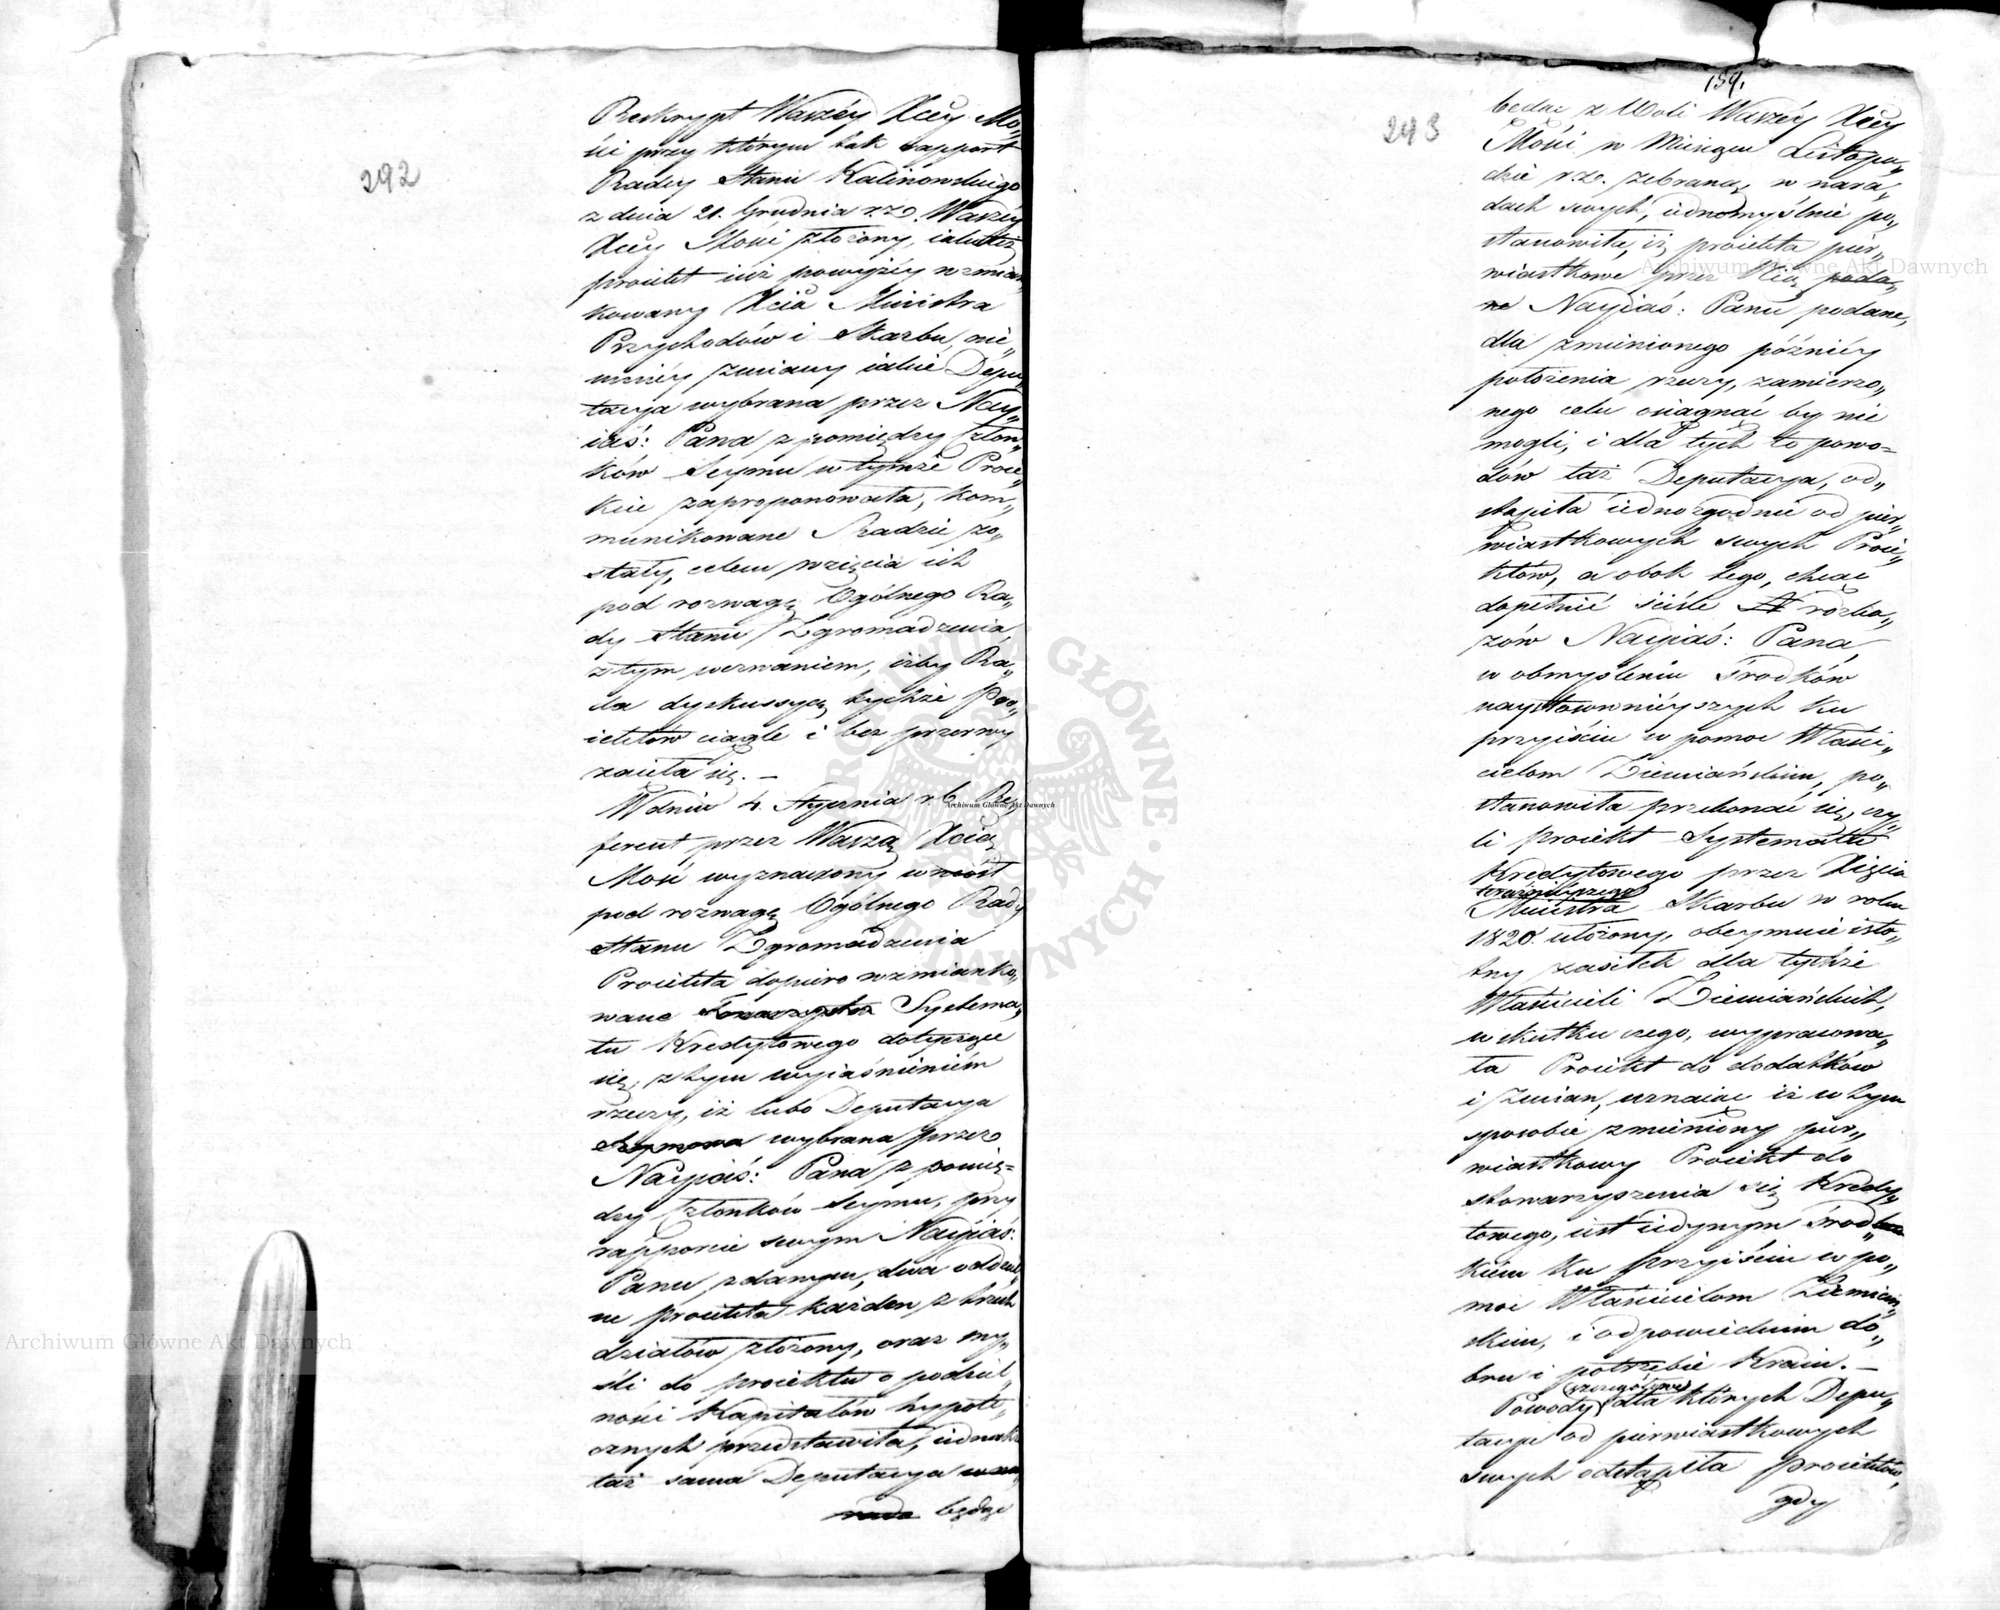 292
Reskrypt Waszéy Xcéy Mo„
ści przy którym tak rapport
Radcy Stanu Kalinowskiego
z dnia 21. Grudnia r.z. Waszéy
Xcéy Mości złożony, iakoteż
proiekt iuż powyżéy wzmian„
kowany Xcia Ministra
Przychodów i Skarbu, nie„
mniéy zmiany iakie Depu„
tacya wybrana przez Nay„
iaś: Pana z pomiędzy Człon„
ków Seymu w tymże Proie„
kcie zaproponowała, kom„
munikowane Radzie zo„
stały, celem wzięcia ich
pod rozwagę Ogólnego Ra„
dy Stanu Zgromadzenia,
z tym wezwaniem, iżby Ra„
da dyskussyą tychże Pro„
iektów ciągle i bez przerwy
zaięła się. —
W dniu 4. Stycznia r.b. Re„
ferent przez Waszą Xcią
Mość wyznaczony wniósł
pod rozwagę Ogólnego Rady
Stanu Zgromadzenia
Proiekta dopiero wzmianko„
wane Towarzystwa Systema„
tu Kredytowego dotyczące
się, z tym wyiaśnieniem
rzeczy, iż lubo Deputacya
Seymowa wybrana przez
Nayiaś: Pana z pomię=
dzy Członków Seymu, przy
rapporcie swym Nayiaś:
Panu zdanym, dwa oddziel„
ne proiekta każden z trzech
działów złożony, oraz my„
śli do proiektu o podziel„
ności Kapitałów hypote„
cznych przedstawiła, iednakże
taż sama Deputacya
będąc
159.
293
będąc z Woli Waszéy Xcéy
Mości w Miesiącu Listopa„
dzie r.z. zebraną, w nara„
dach swych, iednomyślnie po„
stanowiła, iż proiekta pier„
wiastkowe przez Nią poda„
ne Nayiaś: Panu podane,
dla zmienionego późniéy
położenia rzeczy, zamierzo„
nego celu osiągnąć by nie
mogli, i dla tych to powo=
dów taż Deputacya, od„
stąpiła iednozgodnie od pier„
wiastkowych swych Proie„
któw, a obok tego, chcąc
dopełnić ściśle rozka„
zów Nayiaś: Pana,
w obmyśleniu środków
naystosownieyszych ku
przyiściu w pomoc Właści„
cielom Ziemiańskim, po„
stanowiła przekonać się, czy„
li proiekt Systematu
Kredytowego przez Xięcia
teraźnieyszego
Ministra Skarbu w roku
1820. ułożony, obeymuie isto„
tny zasiłek dla tychże
Właścicieli Ziemiańskich,
w skutku czego, wypracowa„
ła Proiekt do dodatków
i zmian, uznaiąc iż w tym
sposobie zmieniony pier„
wiastkowy Proiekt do
stowarzyszenia się Kredy„
towego, iest iedynym środ„
kiem ku przyiściu w po„
moc Właścicielom Ziemiań„
skim, i odpowiednim do„
bru i potrzebie Kraiu. —
szczegółowe
Powody dla których Depu„
tacya od pierwiastkowych
swych odstąpiła proiektów,
gdy
Archiwum Główne Akt Dawnych
Archiwum Główne Akt Dawnych
Archiwum Główne Akt Dawnych